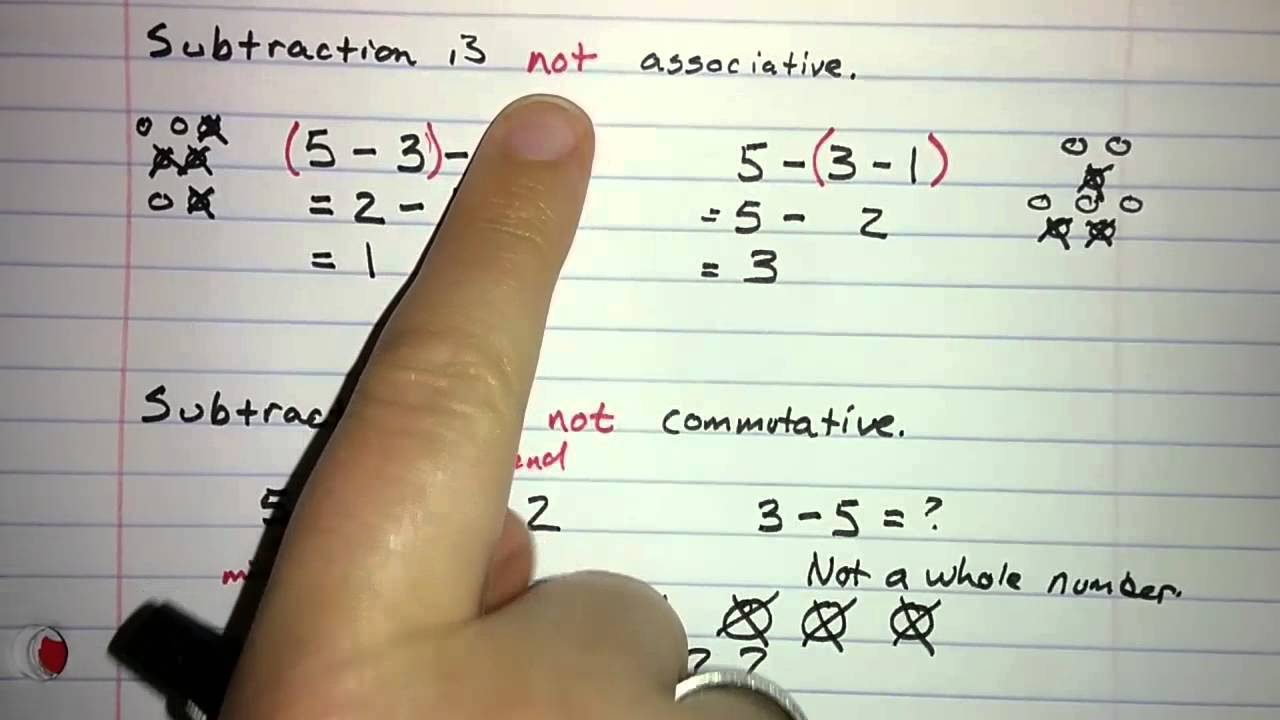 Subtraction is not associative.
(5 - 3) - 5 - (3 - 1)
= 2 - = 5 - 2
= 1 = 3
not commutative.
5 2 3 - 5 = ?
Not a whole number.
? ?